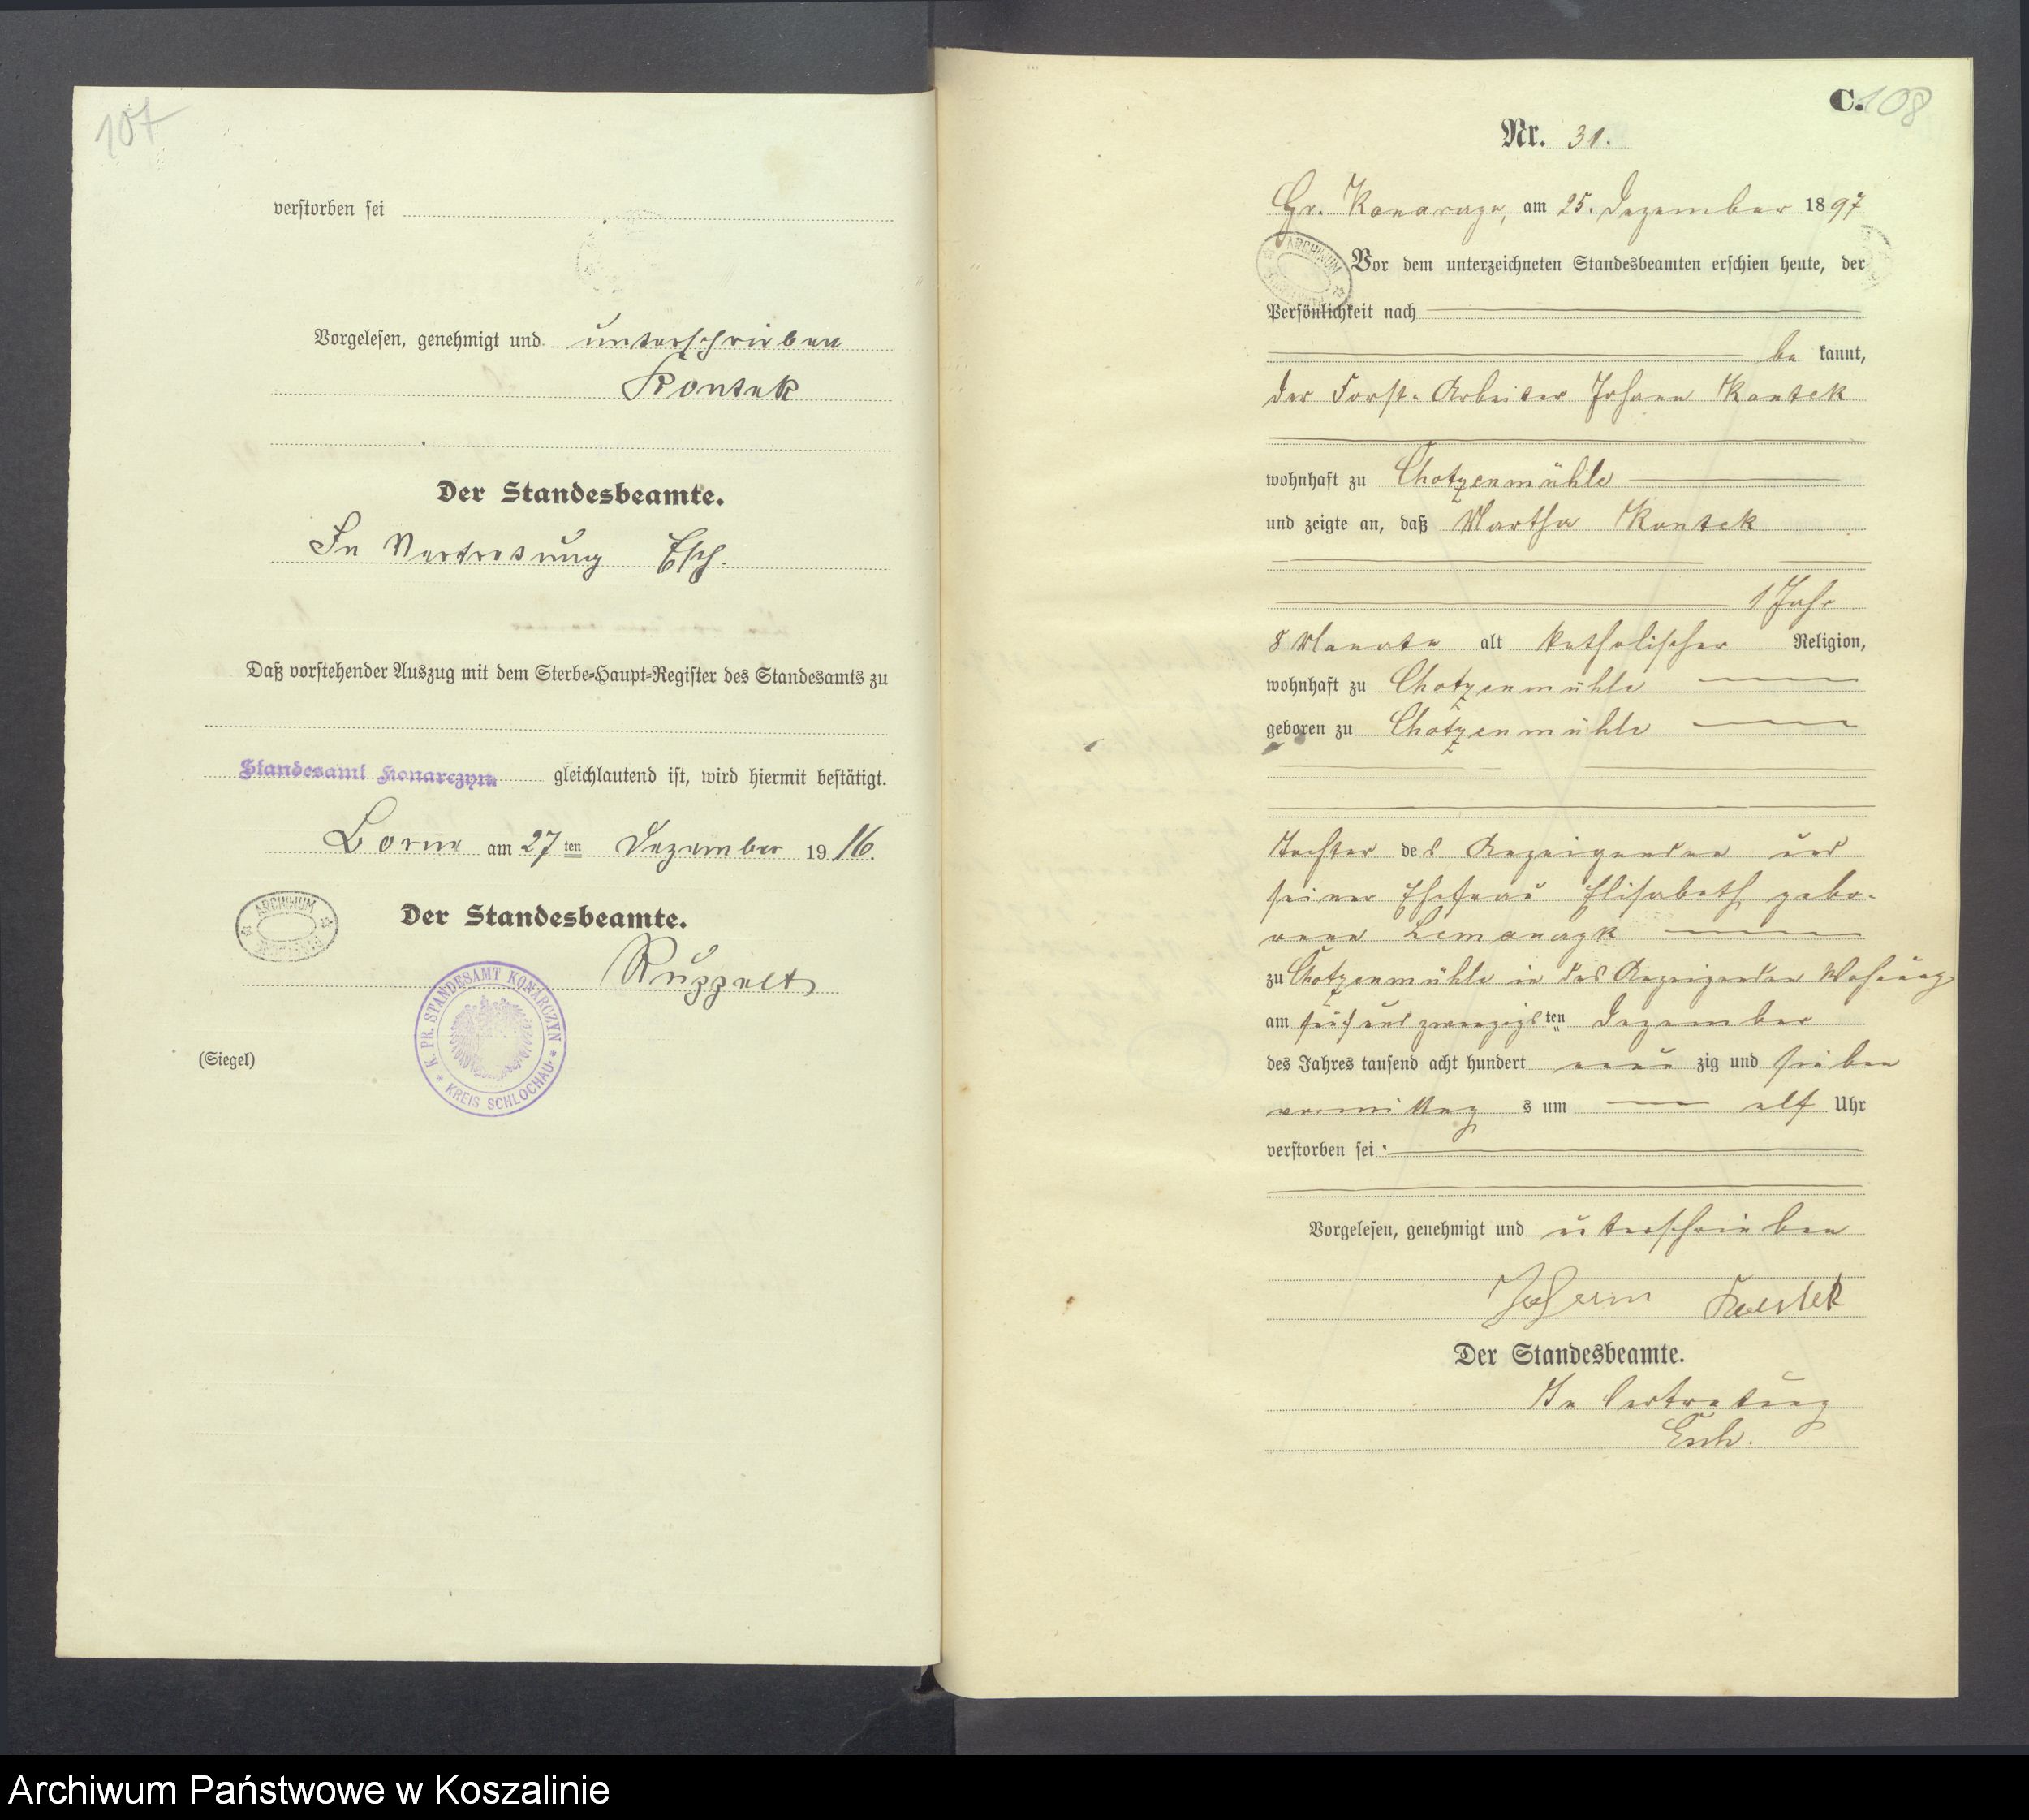 107
verstorben sei
Vorgelesen, genehmigt und unterschrieben
Kontek
Der Standesbeamte.
In Vertretung Esch.
Daß vorstehender Auszug mit dem Sterbe-Haupt-Register des Standesamts zu
Standesamt Konarczyn gleichlautend ist, wird hiermit bestätigt.
am 27ten Dezember 1916.
ARCHIWUM
Der Standesbeamte.
K. PR. STANDESAMT KONARCZYN * KREIS SCHLOCHAU *
(Siegel)
C. 108
Nr. 31.
Gr. Konarczyn, am 25. Dezember 1897
ARCHIWUM
Vor dem unterzeichneten Standesbeamten erschien heute, der
Persönlichkeit nach
be kannt,
der Forst-Arbeiter Johann Kontek
wohnhaft zu Chotzenmühle
und zeigte an, daß Martha Kontek
1 Jahr
8 Monate alt katholischer Religion,
wohnhaft zu Chotzenmühle
geboren zu Chotzenmühle
Tochter des Anzeigenden und
seiner Ehefrau Elisabeth gebo-
rene
zu Chotzenmühle in des Anzeigenden Wohnung
am fünf und zwanzigsten Dezember
des Jahres tausend acht hundert neun zig und sieben
vormittags um elf Uhr
verstorben sei
Vorgelesen, genehmigt und unterschrieben
Johann Kontek
Der Standesbeamte.
In Vertretung
Esch.
Archiwum Państwowe w Koszalinie